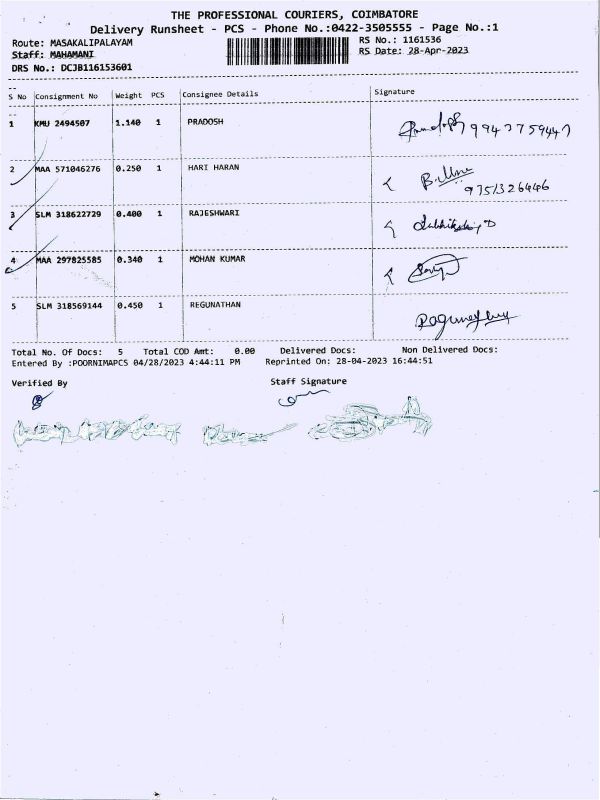 THE PROFESSIONAL COURIERS, COIMBATORE
Delivery Runsheet - PCS - Phone No.:0422-3505555 - Page No.:1
Route: MASAKALIPALAYAM RS No.: 1161536
Staff: MAHAMANI RS Date: 28-Apr-2023
DRS No.: DCJB116153601
S No Consignment No Weight PCS Consignee Details Signature
1 KMU 2494507 1.140 1 PRADOSH
2 MAA 571046276 0.250 1 HARI HARAN
9751326446
3 SLM 318622729 0.400 1 RAJESHWARI
4 MAA 297825585 0.340 1 MOHAN KUMAR
5 SLM 318569144 0.450 1 REGUNATHAN
Total No. Of Docs: 5 Total COD Amt: 0.00 Delivered Docs: Non Delivered Docs:
Entered By :POORNIMAPCS 04/28/2023 4:44:11 PM Reprinted On: 28-04-2023 16:44:51
Verified By Staff Signature